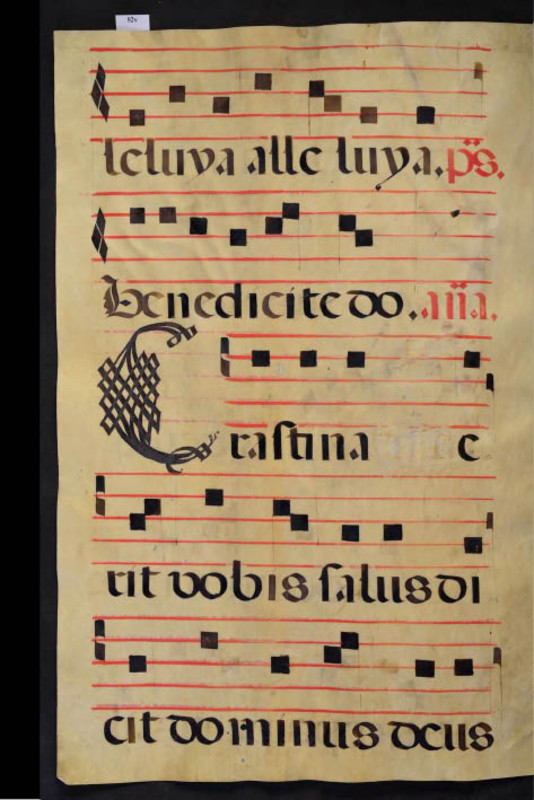 82v
leluya alle luya. ps.
Benedicite do. ana.
Crastina e
rit vobis salus di
cit dominus deus